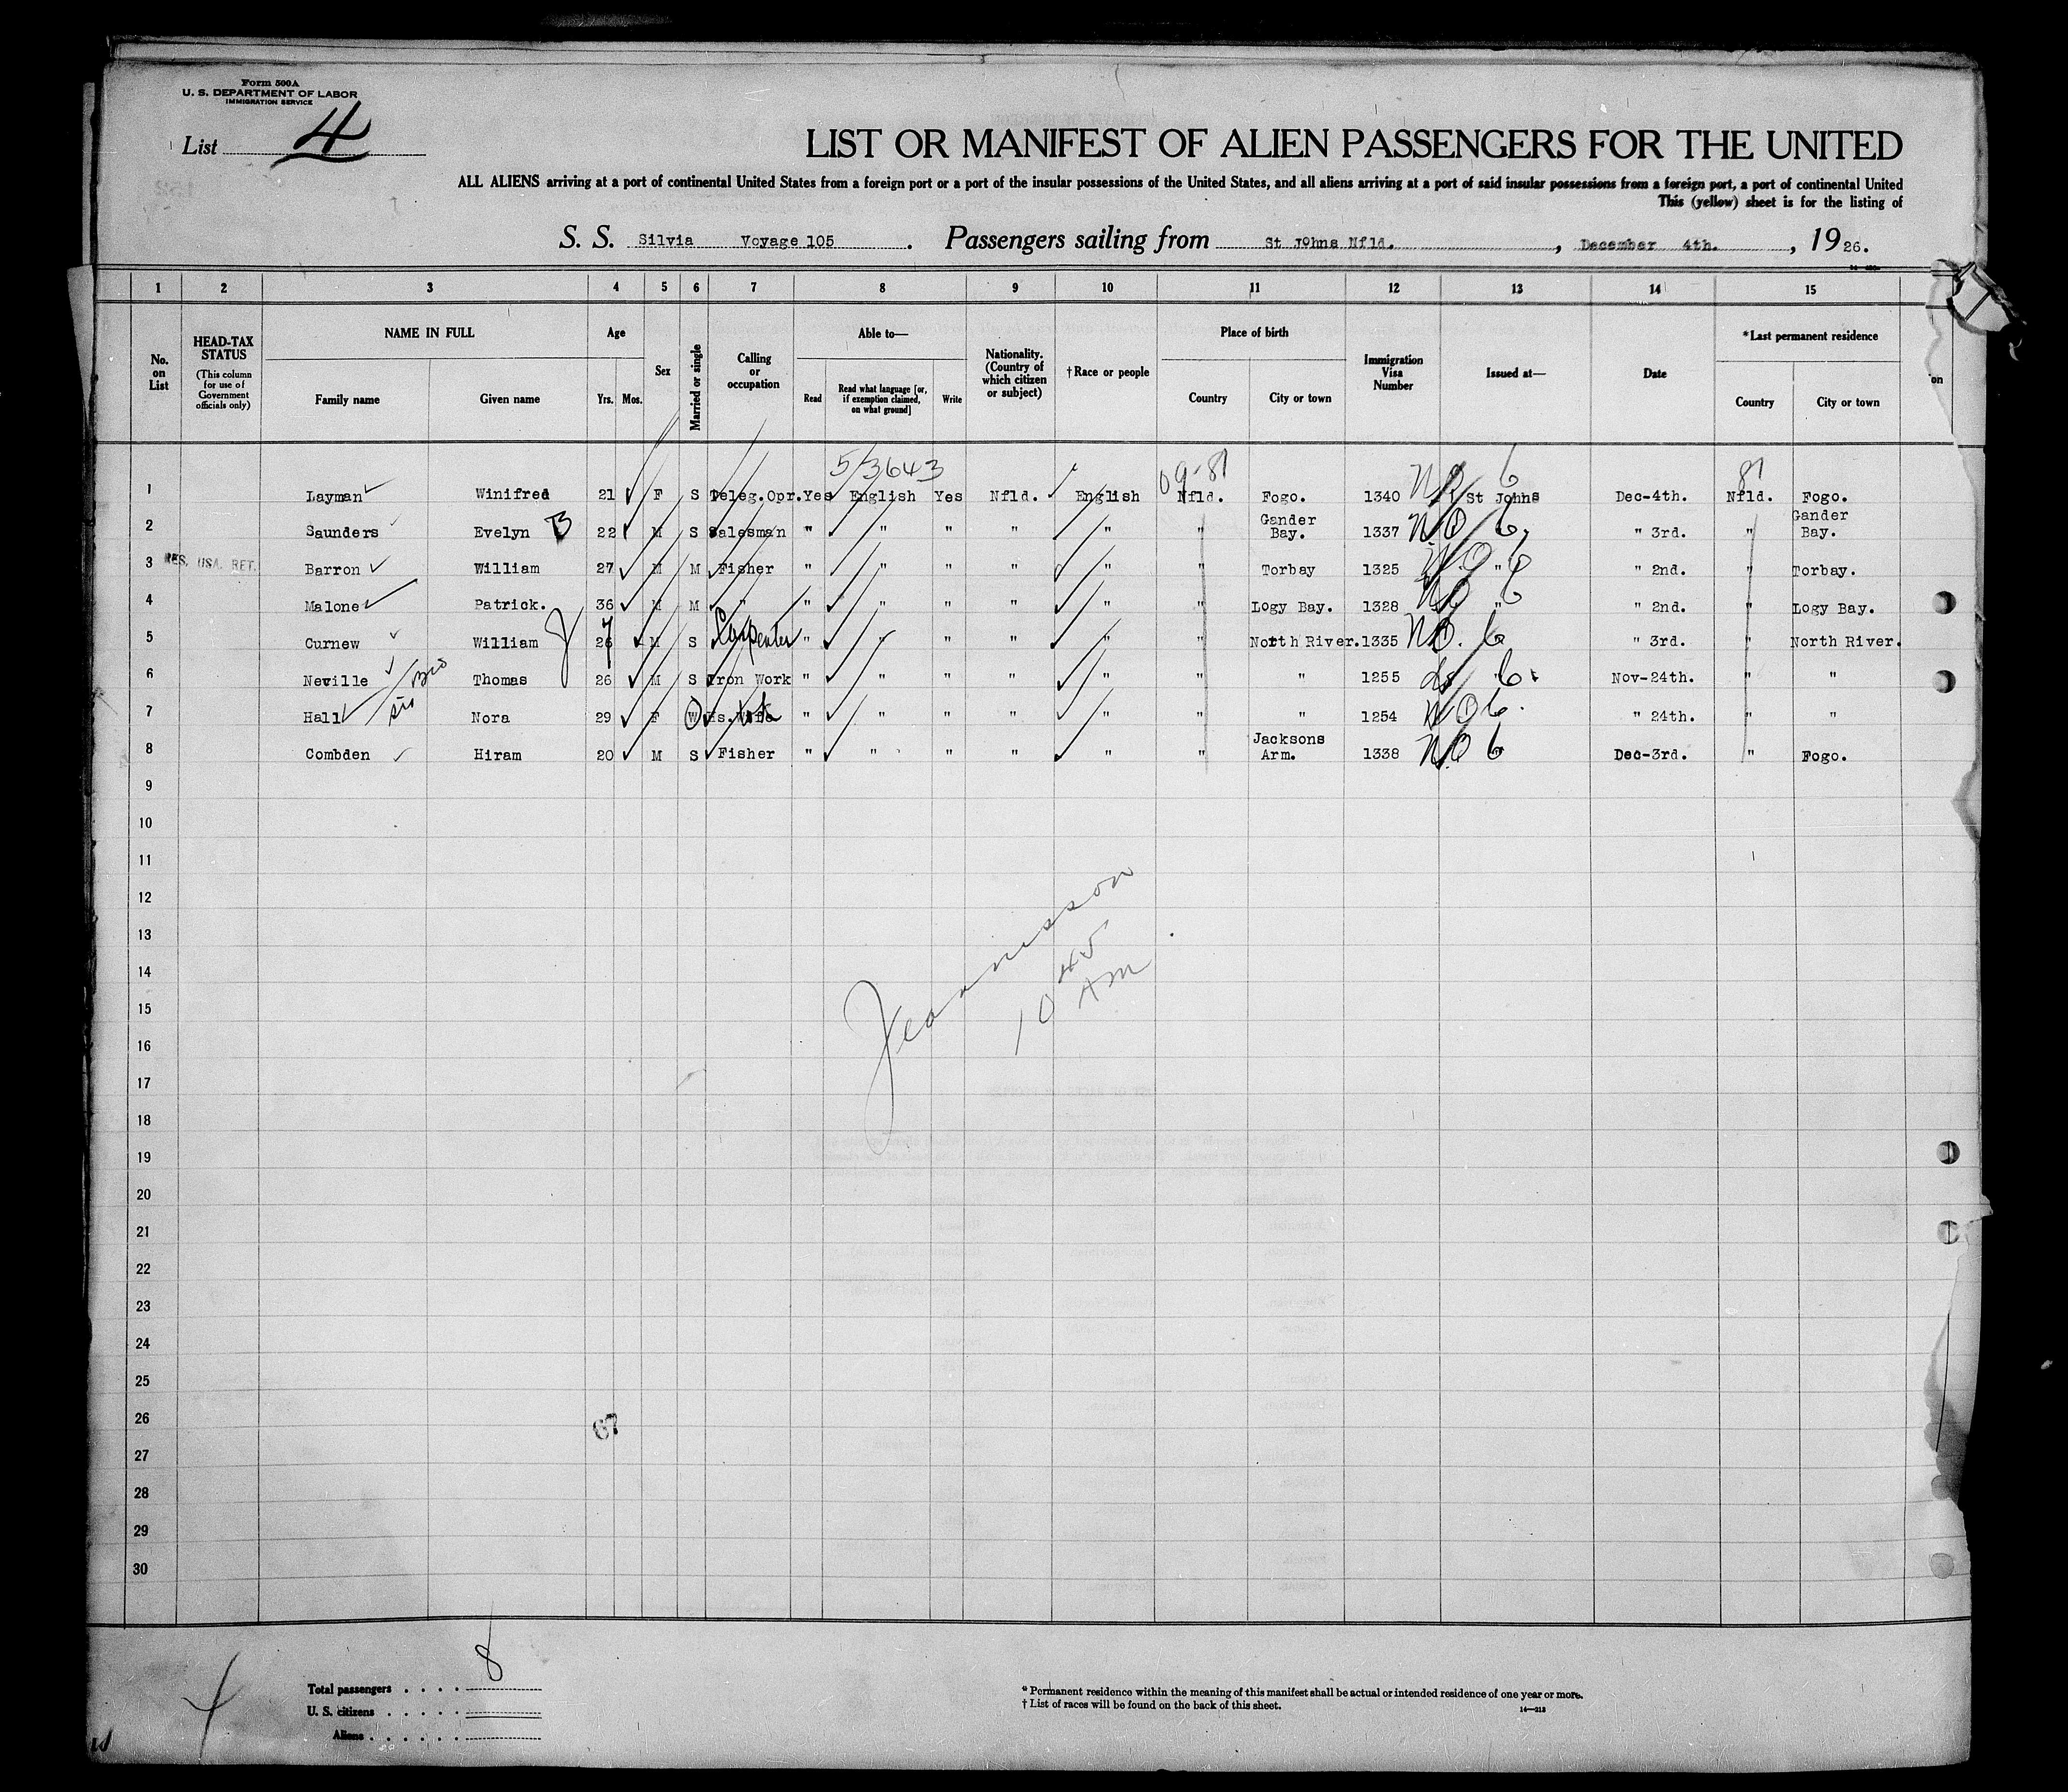 Form 500A
U. S. DEPARTMENT OF LABOR
IMMIGRATION SERVICE
List 4
LIST OR MANIFEST OF ALIEN PASSENGERS FOR THE UNITED
ALL ALIENS arriving at a port of continental United States from a foreign port or a port of the insular possessions of the United States, and all aliens arriving at a port of said insular possessions from a foreign port, a port of continental United
This (yellow) sheet is for the listing of
S. S. Silvia Voyage 105 . Passengers sailing from St Johns Nfld. , December 4th. , 1926.
1 2 3 4 5 6 7 8 9 10 11 12 13 14 15
No. on List
HEAD-TAX STATUS
(This column for use of Government officials only)
NAME IN FULL
Family name Given name
Age
Yrs. Mos.
Sex
Married or single
Calling or occupation
Able to—
Read
Read what language [or, if exemption claimed, on what ground]
Write
Nationality. (Country of which citizen or subject)
†Race or people
Place of birth
Country City or town
Immigration Visa Number
Issued at—
Date
*Last permanent residence
Country City or town
on
5/3643 09-87 87
1 Layman Winifred 21 F S Teleg.Opr. Yes English Yes Nfld. English Nfld. Fogo. 1340 St Johns 6 Dec-4th. Nfld. Fogo.
2 Saunders Evelyn B 22 M S Salesman " " " " " " Gander Bay. 1337 NO 6 " 3rd. " Gander Bay.
3 RES. USA. RET. Barron William 27 M M Fisher " " " " " " Torbay 1325 NO " 6 " 2nd. " Torbay.
4 Malone Patrick. 36 M M " " " " " " " Logy Bay. 1328 NO " 6 " 2nd. " Logy Bay.
5 Curnew William J 26 7 M S Carpenter " " " " " " North River. 1335 NO. 6 " 3rd. " North River.
6 Neville bro Thomas 26 M S Iron Work " " " " " " " 1255 do " 6 Nov-24th. " "
7 Hall sis Nora 29 F W Hs.Wife " " " " " " " 1254 NO 6 " 24th. " "
8 Combden Hiram 20 M S Fisher " " " " " " Jacksons Arm. 1338 NO 6 Dec-3rd. " Fogo.
9
10
11
12
13
14
15
16
17
18
19
20
21
22
23
24
25
26
27
28
29
30
10 45 AM
67
4
8
Total passengers
U. S. citizens
Aliens
* Permanent residence within the meaning of this manifest shall be actual or intended residence of one year or more.
† List of races will be found on the back of this sheet.
14—213